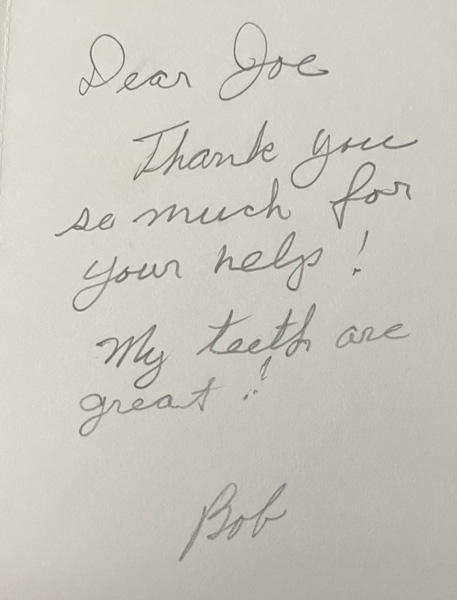 Dear Joe
Thank you
so much for
your help!
My teeth are
great!
Bob